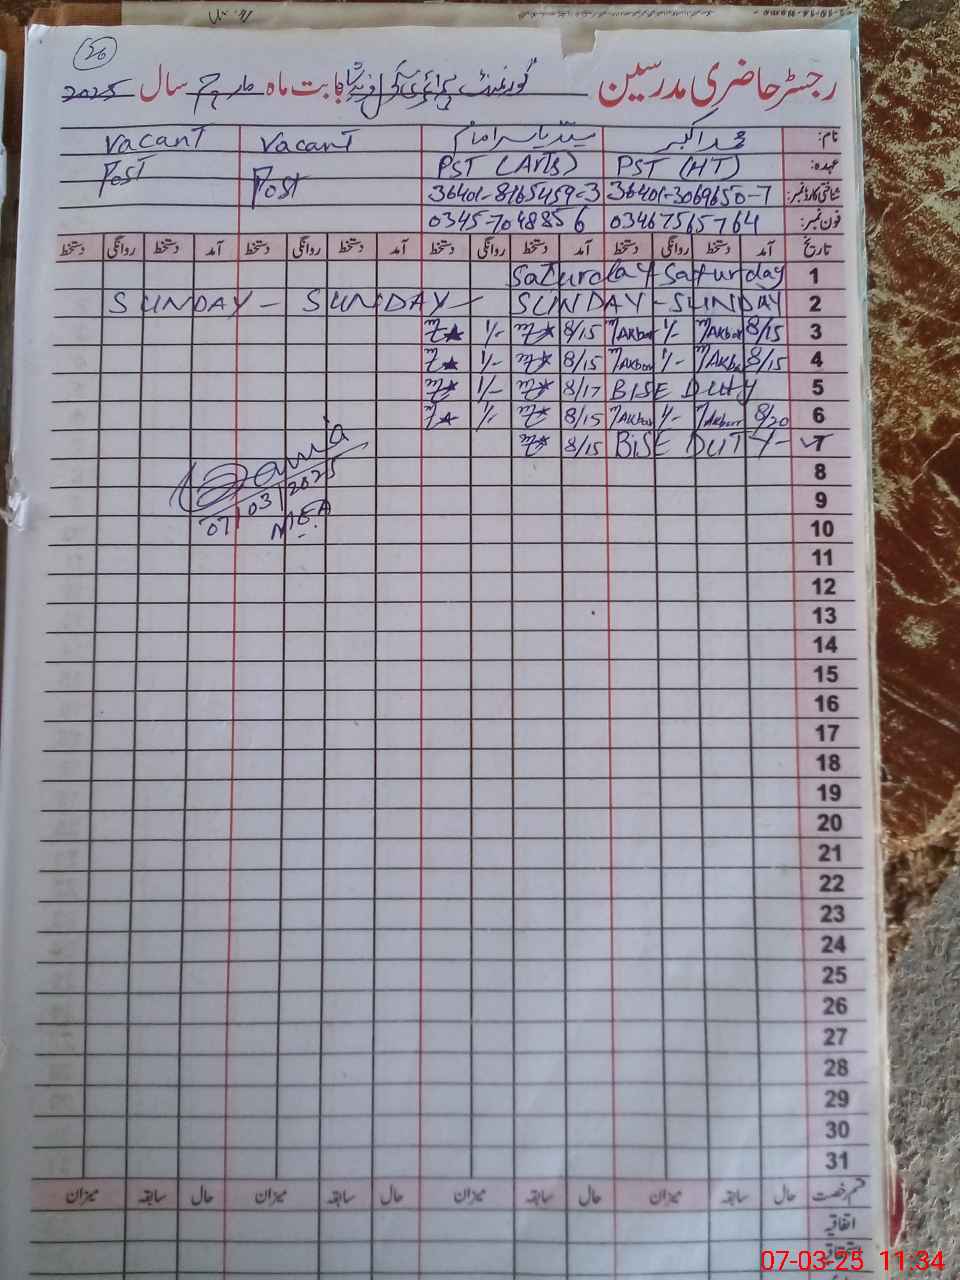 26
رجسٹر حاضری مدرسین گورنمنٹ پرائمری سکول بابت ماہ مارچ سال 2025
نام: محمد اکبر سید یاسر امام Vacant Vacant
عہدہ: PST (HT) PST (Arts) Post Post
شناختی کارڈ نمبر: 36401-3069650-7 36401-8165459-3
فون نمبر: 03467565764 0345-7048856
تاریخ آمد دستخط روانگی دستخط آمد دستخط روانگی دستخط آمد دستخط روانگی دستخط آمد دستخط روانگی دستخط
1 Saturday Saturday
2 SUNDAY - SUNDAY SUNDAY - SUNDAY -
3 8/15 MAkbar 1/- MAkbar 8/15 1/-
4 8/15 MAkbar 1/- MAkbar 8/15 1/-
5 BISE DUTY 8/17 1/-
6 8/20 MAkbar 1/- MAkbar 8/15 1/-
7 BISE DUTY - 8/15
8
07/03/2025
9
MEA
10
11
12
13
14
15
16
17
18
19
20
21
22
23
24
25
26
27
28
29
30
31
قسم رخصت حال سابقہ میزان حال سابقہ میزان حال سابقہ میزان حال سابقہ میزان
اتفاقیہ
07-03-25 11:34